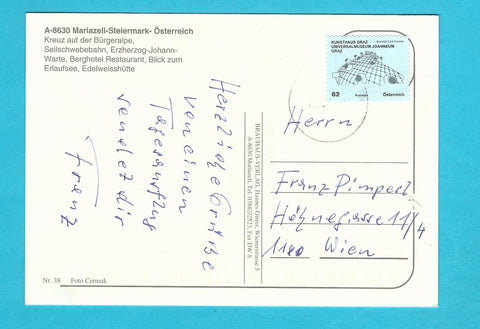 A-8630 Mariazell-Steiermark- Österreich
Kreuz auf der Bürgeralpe,
Seilschwebebahn, Erzherzog-Johann-
Warte, Berghotel Restaurant, Blick zum
Erlaufsee, Edelweisshütte
Herzliche Grüße
von einen
Tagesausflug
sendet dir
Franz
Nr. 38 Foto Cermak
BRAUHAUS-VERLAG, Hannes Girrer, Wienerstrasse 5
A-8630 Mariazell, Tel. 03882/2523, Fax DW 8
KUNSTHAUS GRAZ
UNIVERSALMUSEUM JOANNEUM
GRAZ
62
Österreich
Herrn
Franz Pimperl
11/4
1180 Wien